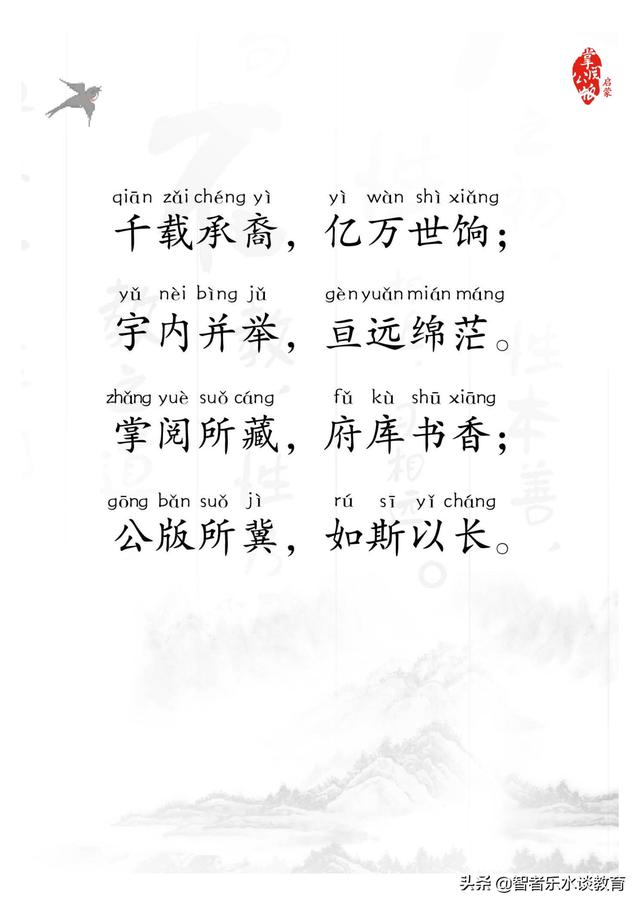 掌阅公版
启蒙
qiān zǎi chéng yì yì wàn shì xiǎng
千载承裔，亿万世饷；
yǔ nèi bìng jǔ gèn yuǎn mián máng
宇内并举，亘远绵茫。
zhǎng yuè suǒ cáng fǔ kù shū xiāng
掌阅所藏，府库书香；
gōng bǎn suǒ jì rú sī yǐ cháng
公版所冀，如斯以长。
头条 @智者乐水谈教育